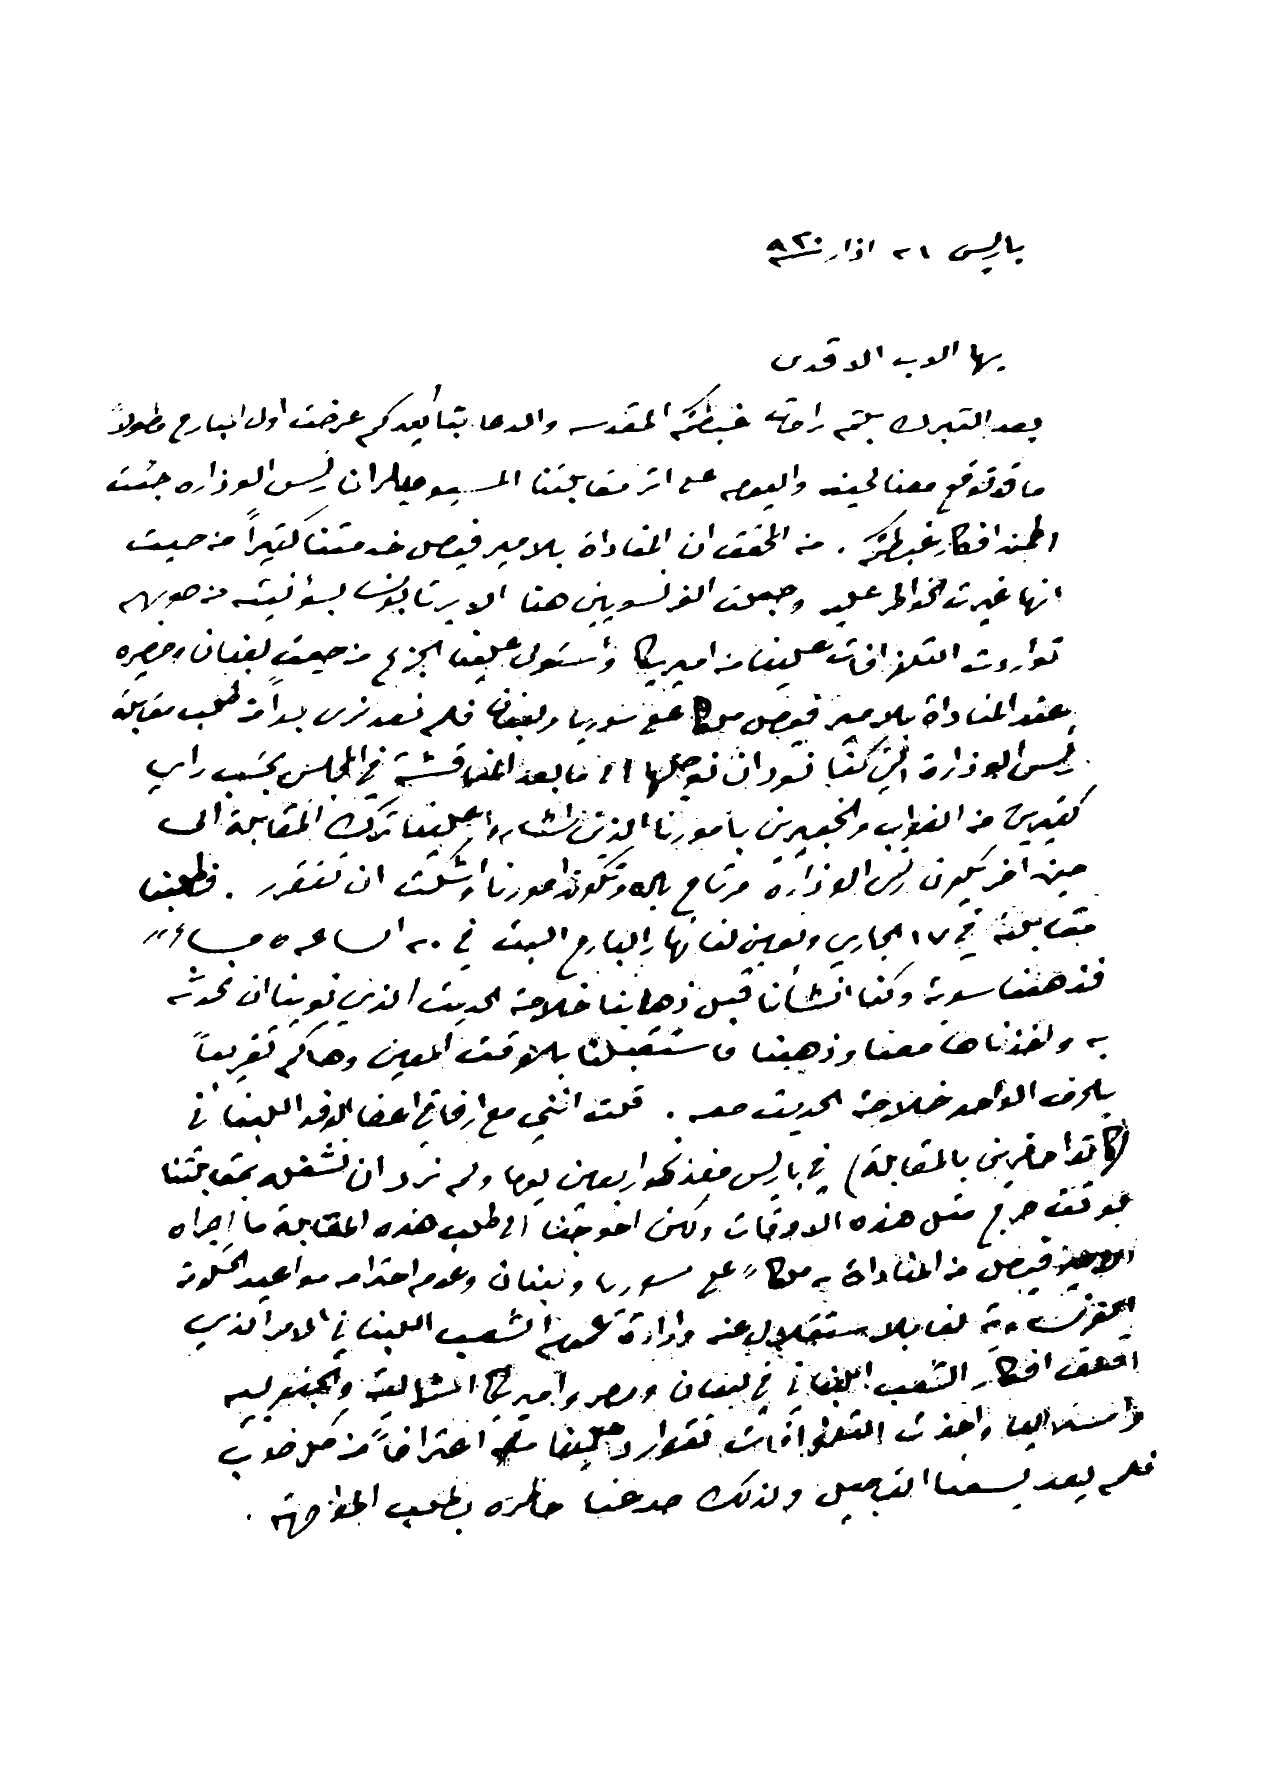 باريس ٢١ اذار سنة ٩٢٠
ايها الاب الاقدس
بعد التبرك بلثم راحات غبطتكم المقدسه والدعا بتأييدكم عرضت اول البارح مطولاً
ما قد توقع معنا لحينه واليوم على اثر مقابلتنا المسيو ميلران رئيس الوزاره جئت
اطمن افكار غبطتكم . من المحقق ان المناداة بالامير فيصل خدمتنا كثيراً من حيث
انها غيرت الخواطر عليه وجعلت الفرنسويين هنا
تواردت التلغرافات علينا من اميركا واستولى علينا الجزع من جهت لبنان ومصيره
عند المناداة بالامير فيصل ملكا على سوريا ولبنان فلم نعد نرى بداً من طلب مقابلة
رئيس الوزارة التي كنا نود ان نؤجلها الى ما بعد المناقشة في المجلس بحسب راي
كثيرين من النواب والخبيرين بامورنا الذين اشاروا علينا بترك المقابلة الى
حين اخر يكون رئيس الوزارة مرتاح باله وتكون امورنا اوشكت ان تتقرر . فطلبنا
مقابلته في ١٧ الجاري وتعين لنا نهار البارح السبت في ٢٠ الساعه ٥ مساءً
فذهبنا سوية وكنا انشأنا قبل ذهابنا خلاصة الحديث الذي نوينا ان نحدثه
به واخذناها معنا وذهبنا فاستقبلنا بالوقت المعين وهاكم تقريباً
بالحرف الواحد خلاصة الحديث معه . قلت انني مع ارفاقي اعضا الوفد اللبناني
(كانوا حاضرين بالمقابلة) في باريس منذ نحو اربعين يوما ولم نرد ان نشغله بمقابلتنا
بوقت حرج مثل هذه الاوقات ولكن احوجنا الى طلب هذه المقابلة ما اجراه
الامير فيصل من المناداة به ملكاً على سوريا ولبنان وعدم احترامه مواعيد الحكومة
الفرنسوية لنا بالاستقلال عنه وارادة عموم الشعب اللبناني الامر الذي
اقلق افكار الشعب اللبناني في لبنان ومصر واميركا الشمالية والجنوبيه
واستراليا واخذت التلغرافات تتوارد علينا احتراضاً من كل صوب
فلم يعد يسعنا التاجيل ولذلك صدعنا خاطره بطلب المواجهة .